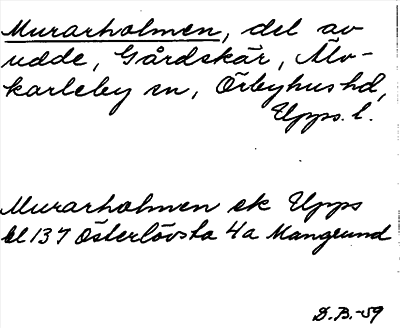 Murarholmen, del av
udde, Gårdskär, Älv-
karleby sn, Örbyhus hd,
Upps. l.
Murarholmen ek Upps
bl 137 Österlövsta 4a Manglund
D.B.-59